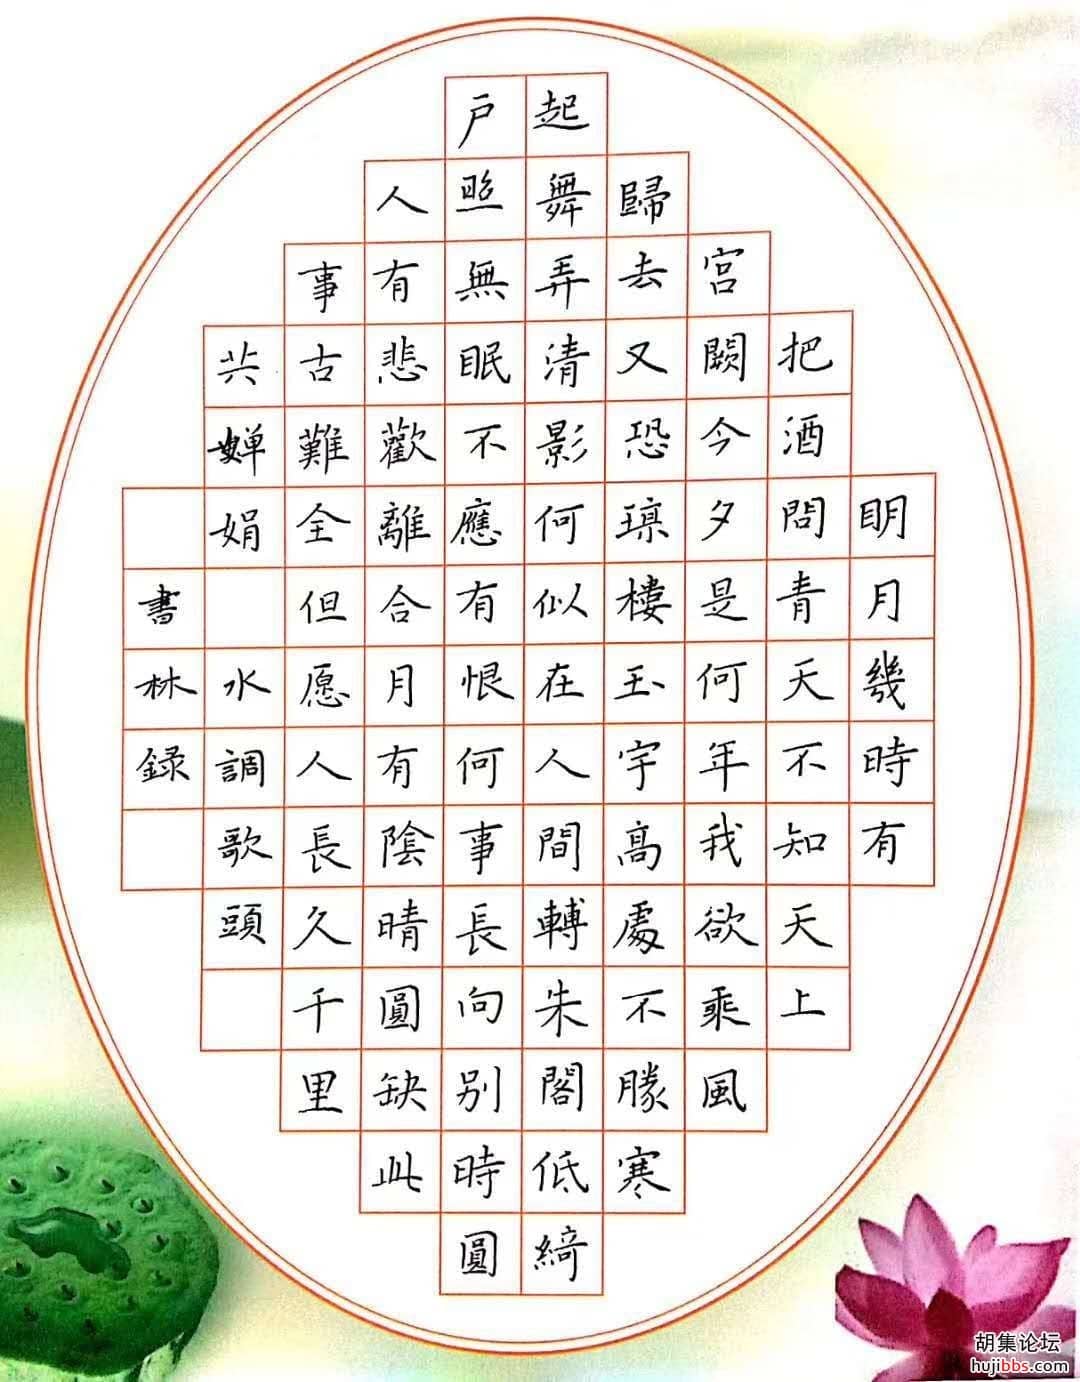 明月幾時有
把酒問青天不知天上
宮闕今夕是何年我欲乘風
歸去又恐瓊樓玉宇高處不勝寒
起舞弄清影何似在人間轉朱閣低綺
戶照無眠不應有恨何事長向别時圓
人有悲歡離合月有陰晴圓缺此
事古難全但愿人長久千里
共婵娟 水調歌頭
書林録
胡集论坛
hujibbs.com